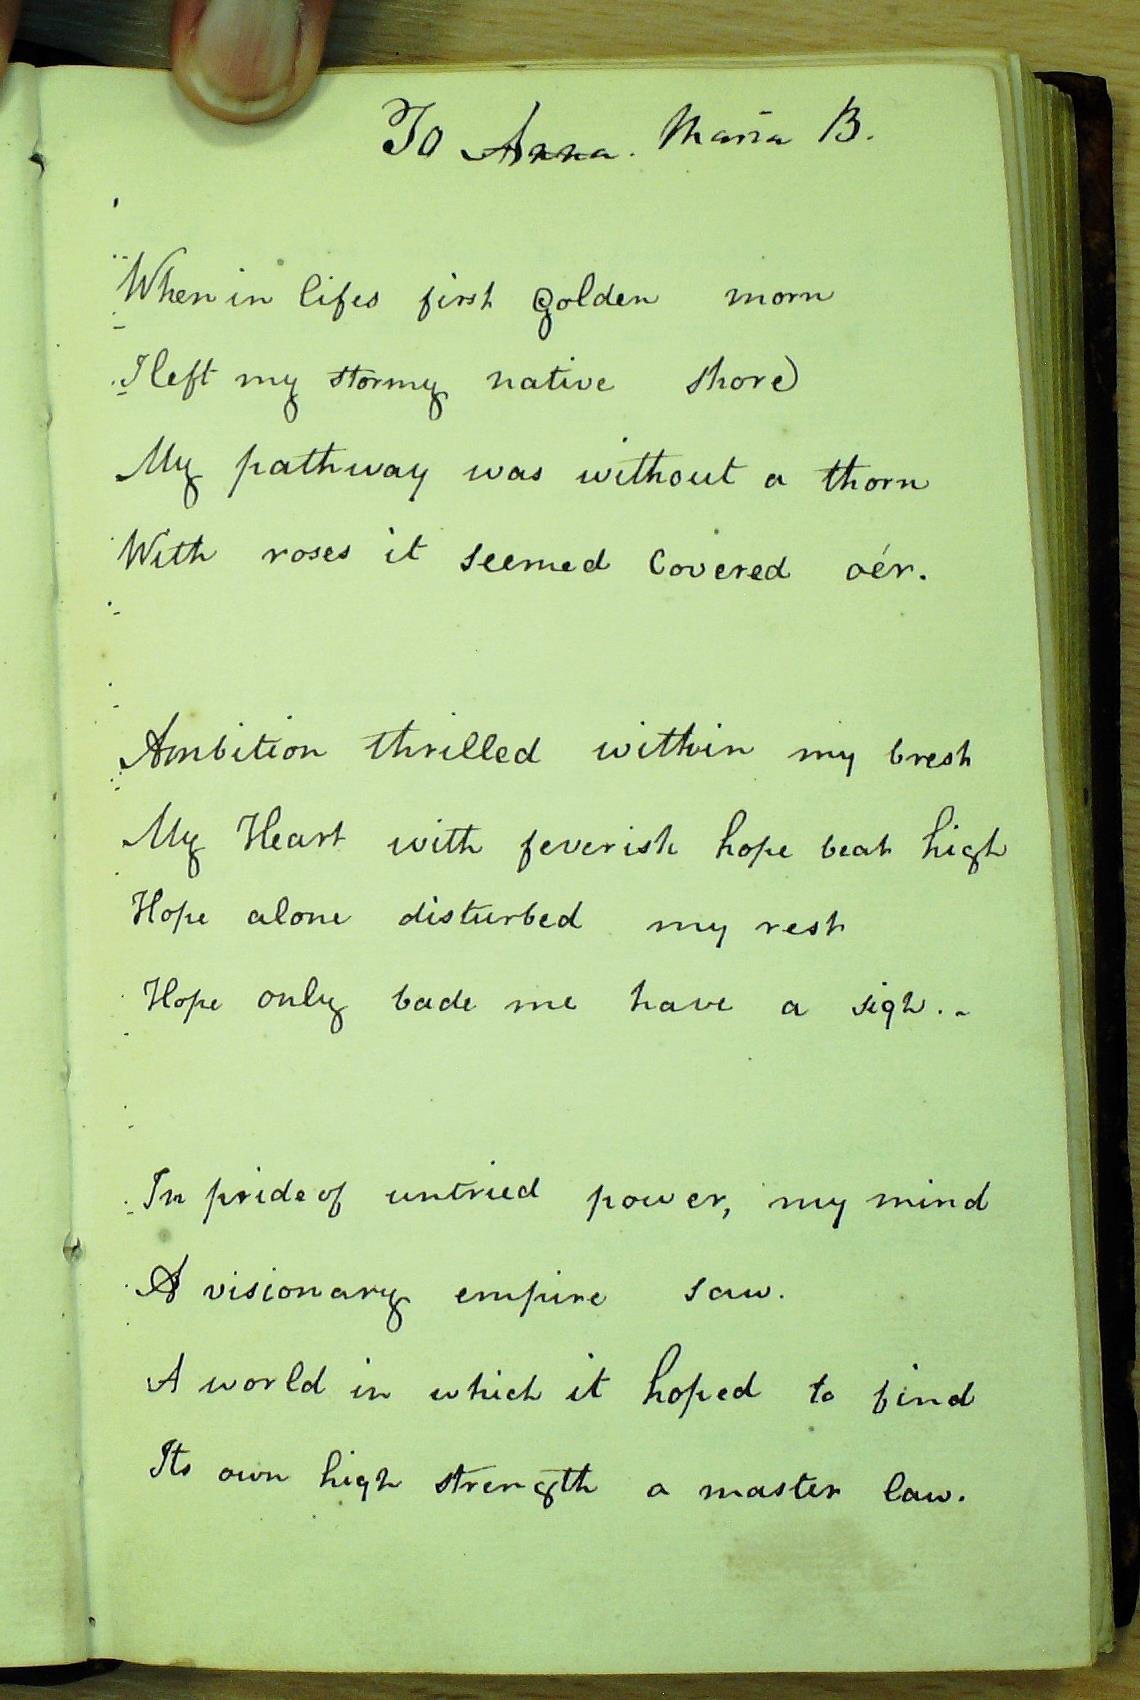 To Anna. Maria B.
When in lifes first golden morn
I left my stormy native shore
My pathway was without a thorn
With roses it seemed Covered oér.
Ambition thrilled within my brest
My Heart with feverish hope beat high
Hope alone disturbed my rest
Hope only bade me have a sigh.
In pride of untried power, my mind
A visionary empire saw.
A world in which it hoped to find
Its own high strength a master law.